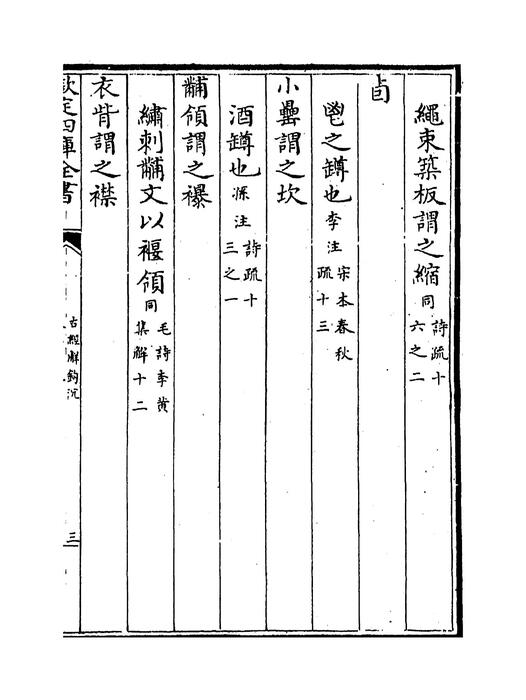 繩束築板謂之縮同詩疏十六之二
卣
鬯之罇也李注宋本春秋疏十三
小罍謂之坎
酒罇也孫注詩疏十三之一
黼領謂之襮
繡刺黼文以褗領同毛詩李黄集解十二
衣眥謂之襟
欽定四庫全書
古經解鉤沉
三